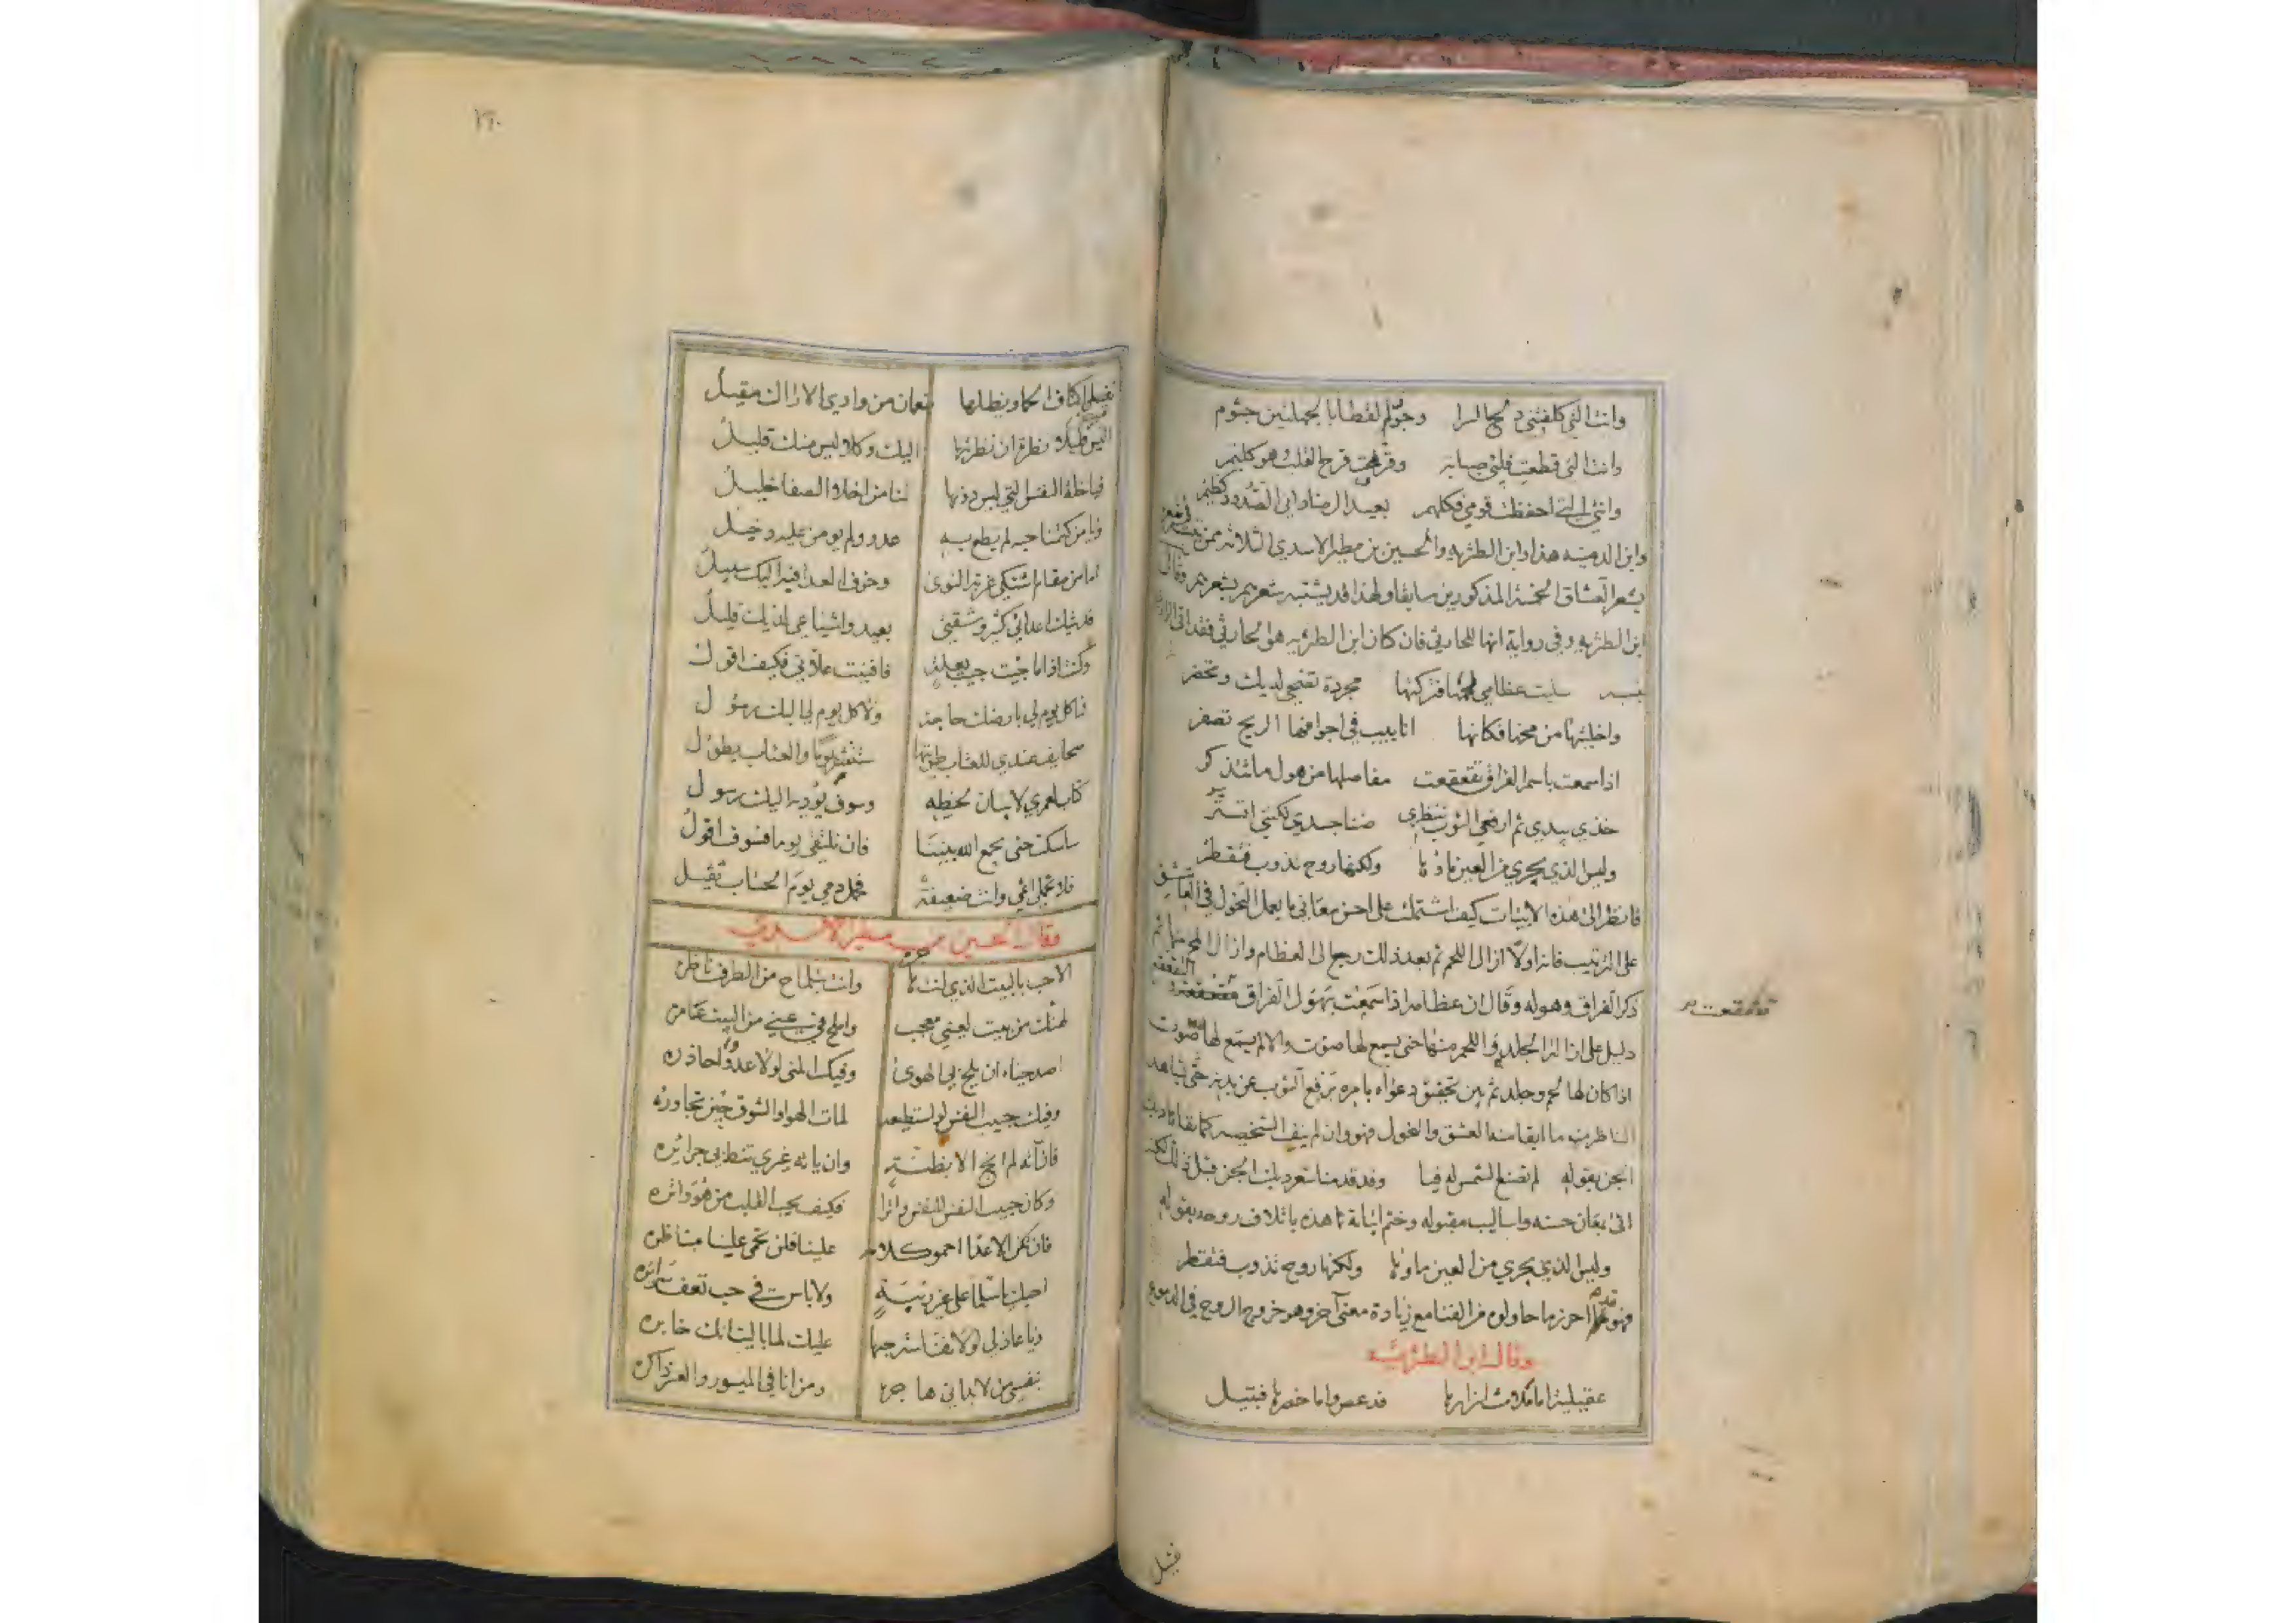 وانت التي كلفتني دلج السرا وجون القطا بالجهلتين جثوم
وانت التي قطعت قلبي صبابة وقرحت قرح القلب وهو كليم
وانتي التي احفظت قومي فكلهم بعيد الرضا داني الصدود كظيم
وابن الدمينه هذا وابن الطثريه والحسين بن مطير الاسدي الثلاثه ممن
بشعر العشاق الخمسة المذكورين سابقا ولهذا قد يشتبه شعرهم بشعرهم وقال
ابن الطثريه وفي رواية انها للحارثي فان كان ابن الطثريه هو الحارثي فقد
سلبت عظامي لحمها فتركتها مجردة تضحي لديك وتخصر
واخليتها من مخها فكانها انابيب في اجوافها الريح تصفر
اذا سمعت باسم الفراق تقعقعت مفاصلها من هول ما تتذكر
خذي بيدي ثم ارفعي الثوب تنظري ضنا جسدي لكنني اتستر
وليس الذي يجري من العين ماؤها ولكنها روح تذوب فتقطر
فانظر الى هذه الابيات كيف اشتملت على احسن معاني ما يعمل النحول في العاشق
على الترتيب فانه اولا ازال اللحم ثم بعد ذلك رجع الى العظام وازال المخ منها ثم
ذكر الفراق وهوله وقال ان عظامه اذا سمعت بهول الفراق تقعقعت
تقعقعت
دليل على ان الجلد واللحم منها حتى يسمع لها صوت والا لم يسمع لها صوت
اذا كان لها لحم وجلد ثم بين تحقيق دعواه بامره برفع الثوب عن بدنه حتى يشاهد
الناظر منه ما ابقا منه العشق والنحول فهو وان لم ينف الشخصيه كما نفاها ديك
الجن بقوله لم تصنع الشمس له فيا وقد قدمنا شعر ديك الجن قبل ذلك لكنه
اتى بمعان حسنه واساليب مقبوله وختم ابياته هذه باتلاف روحه بقوله
وليس الذي يجري من العين ماؤها ولكنها روح تذوب فتقطر
فهو احرز ما حاولوه من الفنا مع زيادة معنى آخر وهو خروج الروح في الدموع
وقال ابن الطثريه
عقيلية اما ملاث ازارها فدعص واما خصرها فبتيل
تقيل
١٢٠
تقيل اكناف الحما ويظلها بنعمان من وادي الاراك مقيل
اليس قليلا نظرة ان نظرتها اليك وكلا ليس منك قليل
فيا خلة النفس التي ليس دونها لنا من اخلاء الصفا خليل
ويا من كتمنا حبه لم يطع به عدو ولم يومن عليه دخيل
اما من مقام اشتكي غربة النوى وخوف العدا فيه اليك سبيل
فديتك اعدائي كثير وشقتي بعيد واشياعي لديك قليل
وكنت اذا ما جئت جئت بعلة فافنيت علاتي فكيف اقول
فما كل يوم لي بارضك حاجة ولا كل يوم لي اليك رسول
صحايف عندي للعتاب طويتها ستنشر يوما والعتاب يطول
كتاب لعمري لا بنان يخطه وسوف يؤديه اليك رسول
ساسكت حتى يجمع الله بيننا فان نلتقي يوما فسوف اقول
فلا تحملي اثمي وانت ضعيفة فحمل دمي يوم الحساب ثقيل
وقال الحسين بن مطير الاسدي
الا حب بالبيت الذي انت هاجره وانت بتلماح من الطرف ناظره
لهنك من بيت لعيني معجب واملح في عيني من البيت عامره
اصد حياء ان يلج بي الهوى وفيك المنى لولا عدو احاذره
وفيك حبيب النفس لو تستطيعه لمات الهوا والشوق حين تجاوره
فان آته لم انج الا بظنة وان ياته غيري تنط بي جرائره
وكان حبيب النفس للنفس واترا فكيف يحب القلب من هو واتره
فان تكن الاعدا احموا كلامه علينا فلن تحمى علينا مناظره
احبك يا سلما على غير ريبة ولا باس في حب تعف سرائره
ويا عاذلي لولا نفاسة حبها عليك لما باليت انك خابره
بنفسي من لا بد اني هاجره ومن انا في الميسور والعسر ذاكره